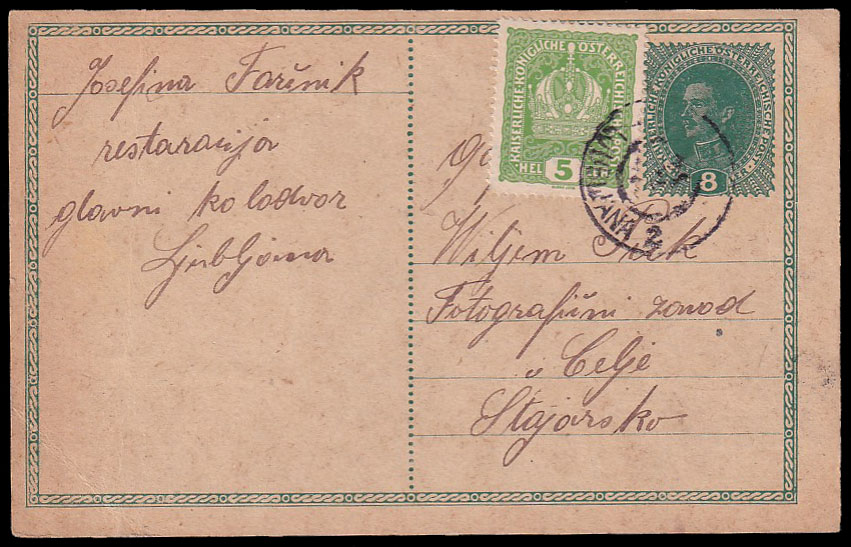 Josefina Farčnik
restaracija
glavni kolodvor
Ljubljana
KAISERLICHE KÖNIGLICHE ÖSTERREICHISCHE POST
HEL 5 LER
KAISERLICHE KÖNIGLICHE ÖSTERREICHISCHE POST
8
ANA 2
Viljem
Fotografični zavod
v Celje
Štajarsko